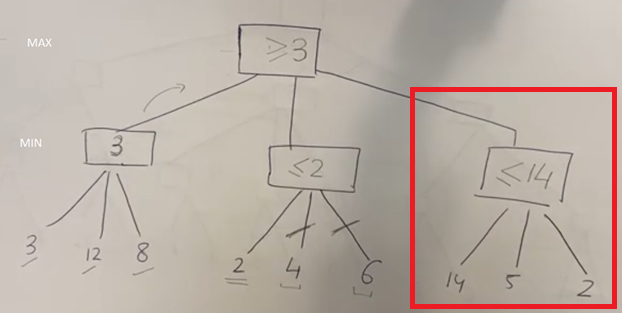 MAX
≥3
MIN
3
≤2
≤14
3 12 8
2 4 6
14 5 2